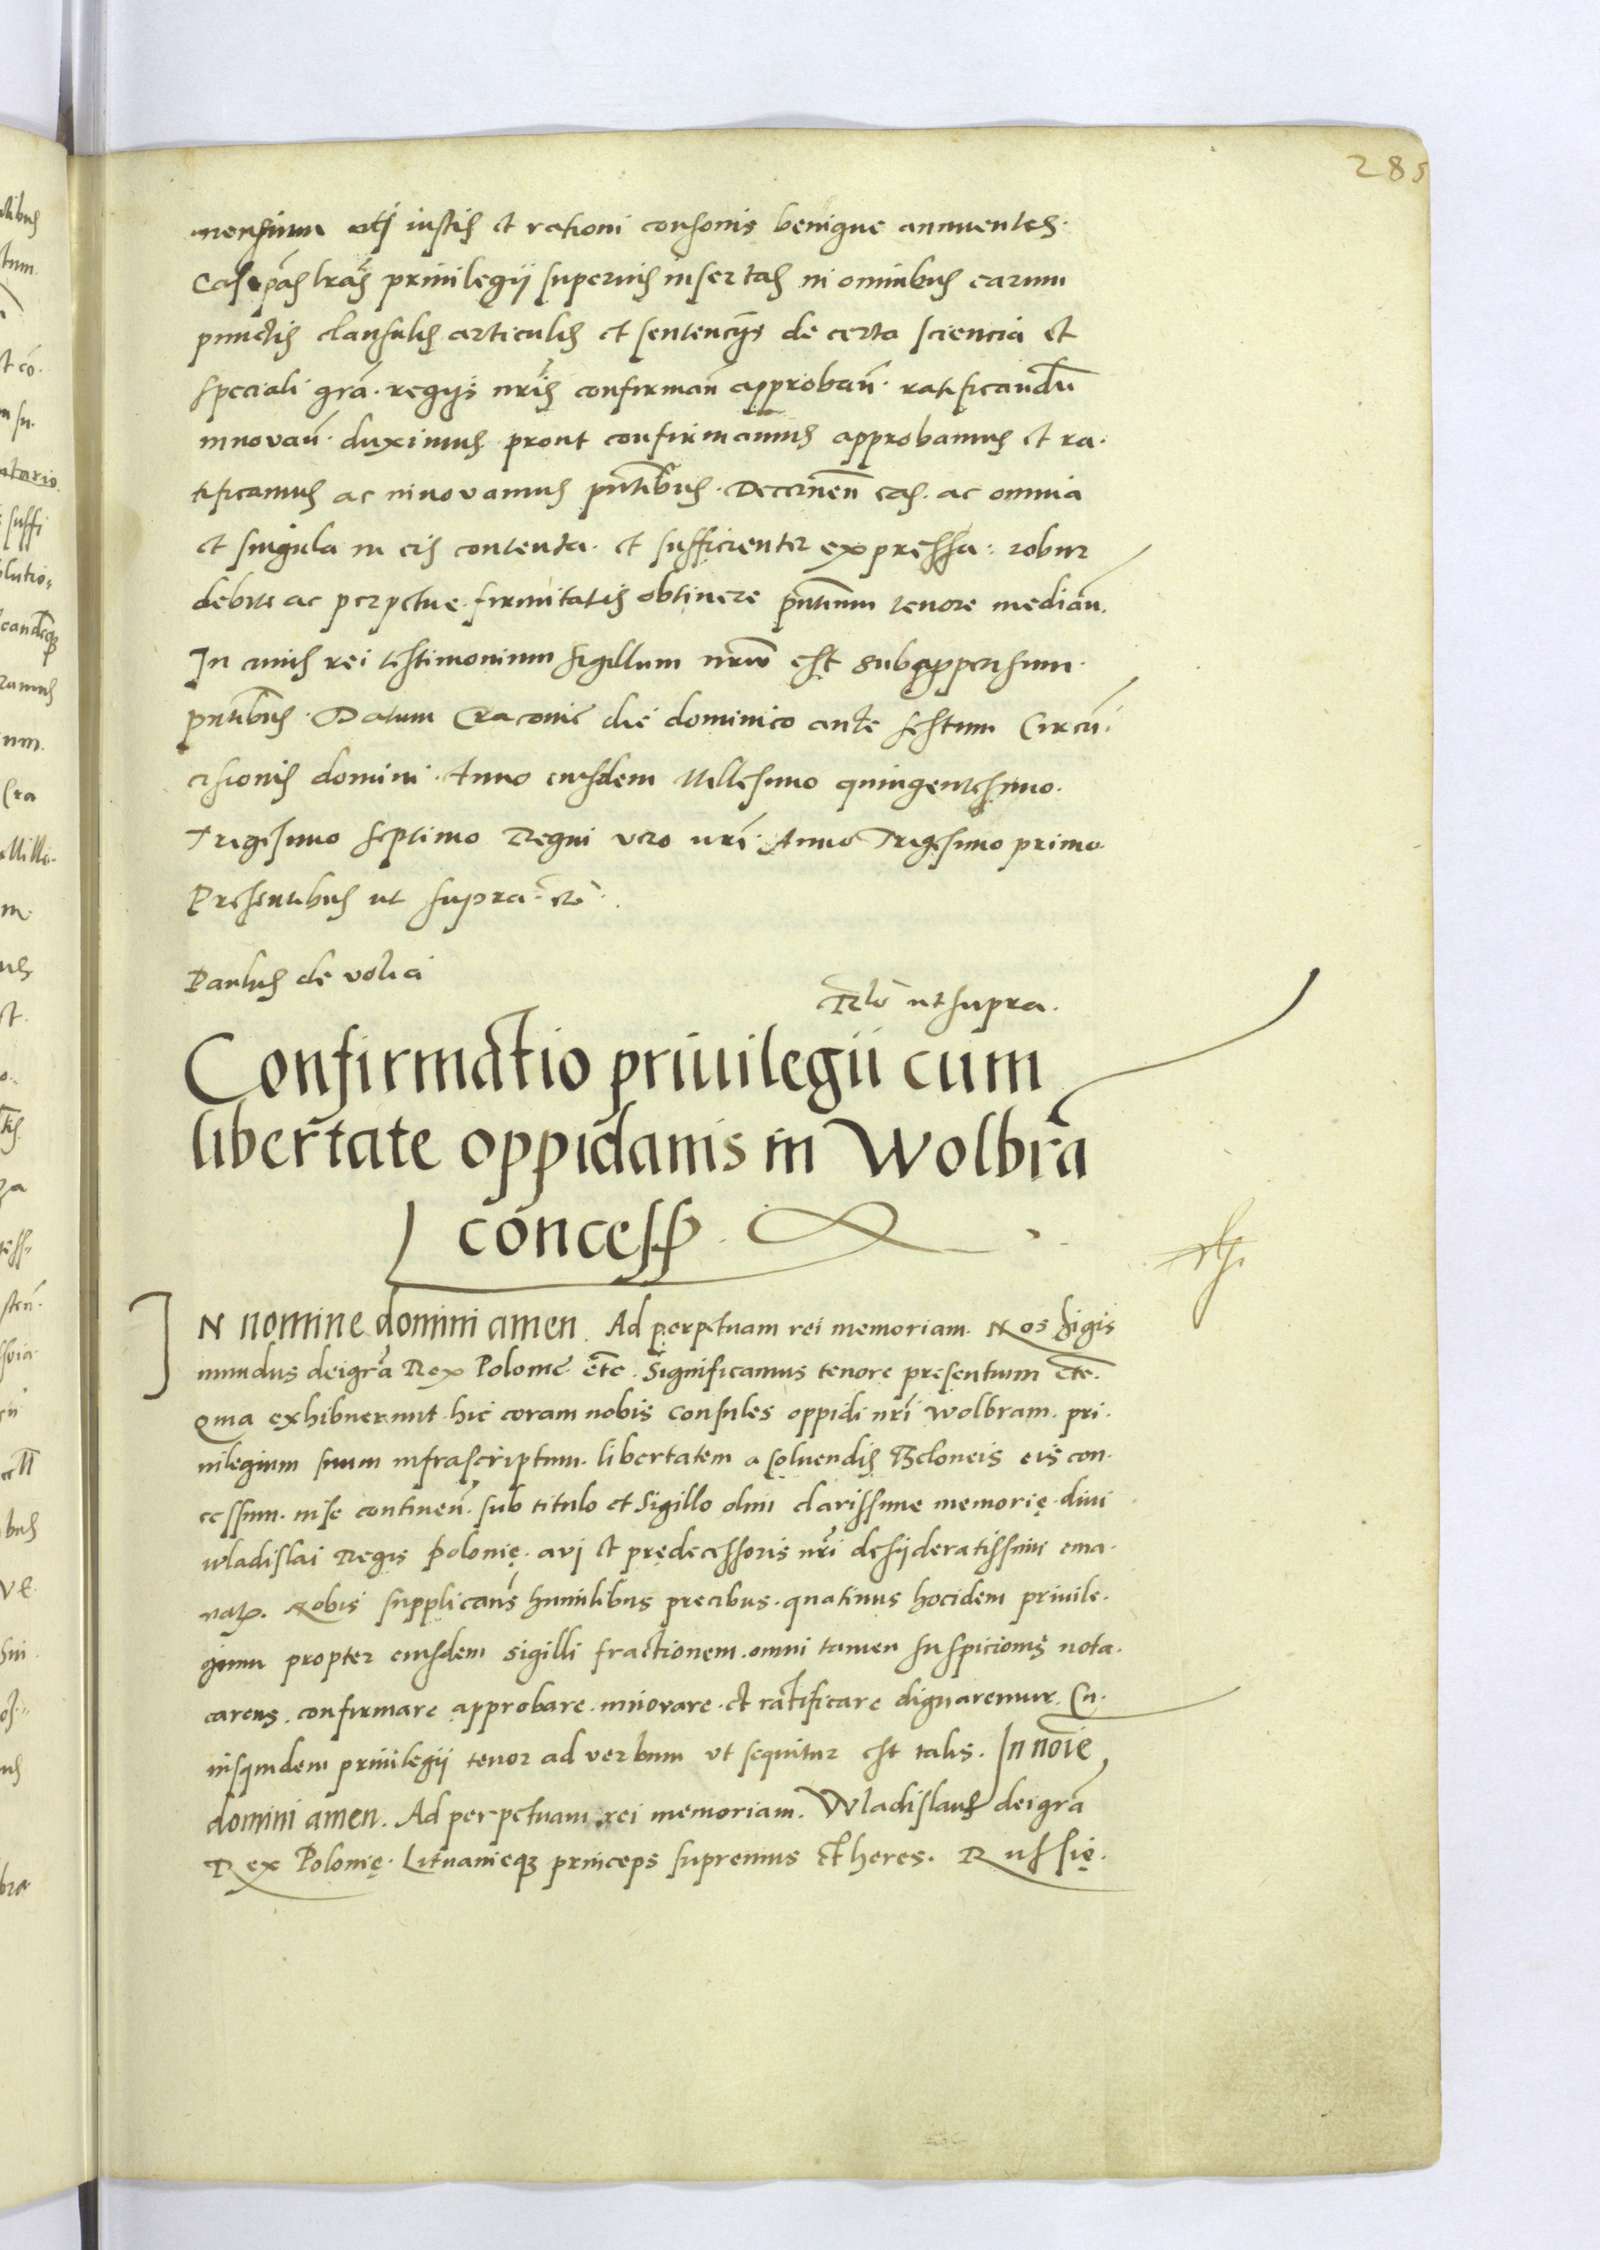 285
mensium uti iustis et rationi consonis benigne annuentes.
Cas pñs lr̃as priuilegij superius insertas in omnibus earum
punctis clausulis articulis et sentencijs de certa sciencia et
speciali gr̃a. regijs nr̃is confirmañ approbañ. ratificandũ
innovañ. duximus prout confirmamus approbamus et ra.
tificamus ac innovamus pñtibus. Decerneñ eas. ac omnia
et singula in eis contenta. et sufficienter expressa: robur
debite ac perpetue. firmitatis obtinere pñtium tenore mediañ.
In cuius rei testimonium sigillum nr̃um est subappensum.
pñtibus. Datum Cracovie die dominico ante festum Circũ.
cisionis domini. Anno eiusdem Millesimo quingentesimo.
Trigesimo septimo Regni vero nr̃i. Anno Trigesimo primo.
Presentibus ut supra. etc̃.
Paulus de volia
Rl̃o ut supra.
Confirmatio priuilegii cum
libertate oppidanis in Wolbrã
concess
IN nomine domini amen. Ad perpetuam rei memoriam. Nos Sigis
mundus deigr̃a Rex Polonie. etc̃. Significamus tenore presentium etc̃.
Quia exhibuerunt. hic coram nobis consules oppidi nr̃i Wolbram. pri.
uilegium suum infrascriptum. libertatem a soluendis Theloneis eis con.
cessum. inse continen̄. sub titulo et Sigillo olim clarissime memorię. diui
Wladislai Regis Polonię. avi et prędecessoris nr̃i desyderatissimi ema.
nat. Nobis supplicañs humilibus precibus. quatinus hocidem priuile.
gium propter eiusdem sigilli fractionem. omni tamen suspicionis nota.
carens. confirmare approbare. innovare. et ratificare dignaremur. Cu.
iusquidem priuilegij tenor ad verbum ut sequitur est talis. In noĩe
domini amen. Ad perpetuam rei memoriam. Wladislaus deigrã
Rex Polonię. Lituanieqz princeps supremus et heres. Russię.